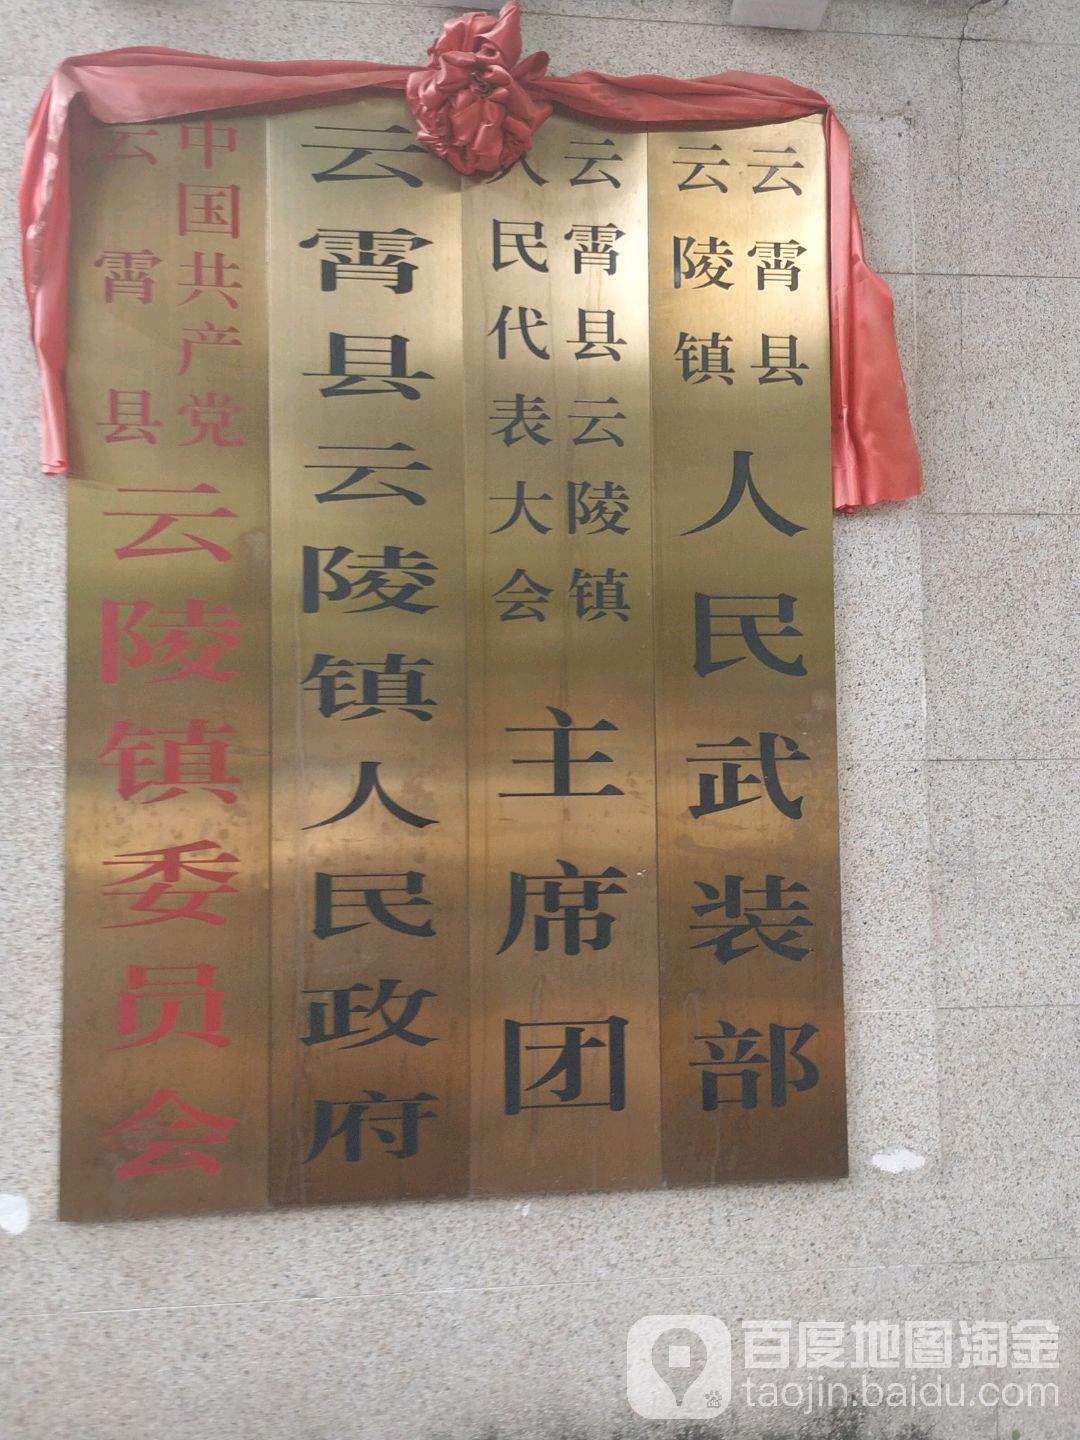 中国共产党
云霄县
云陵镇委员会
云霄县云陵镇人民政府
云霄县云陵镇
人民代表大会
主席团
云霄县
云陵镇
人民武装部
百度地图淘金
taojin.baidu.com